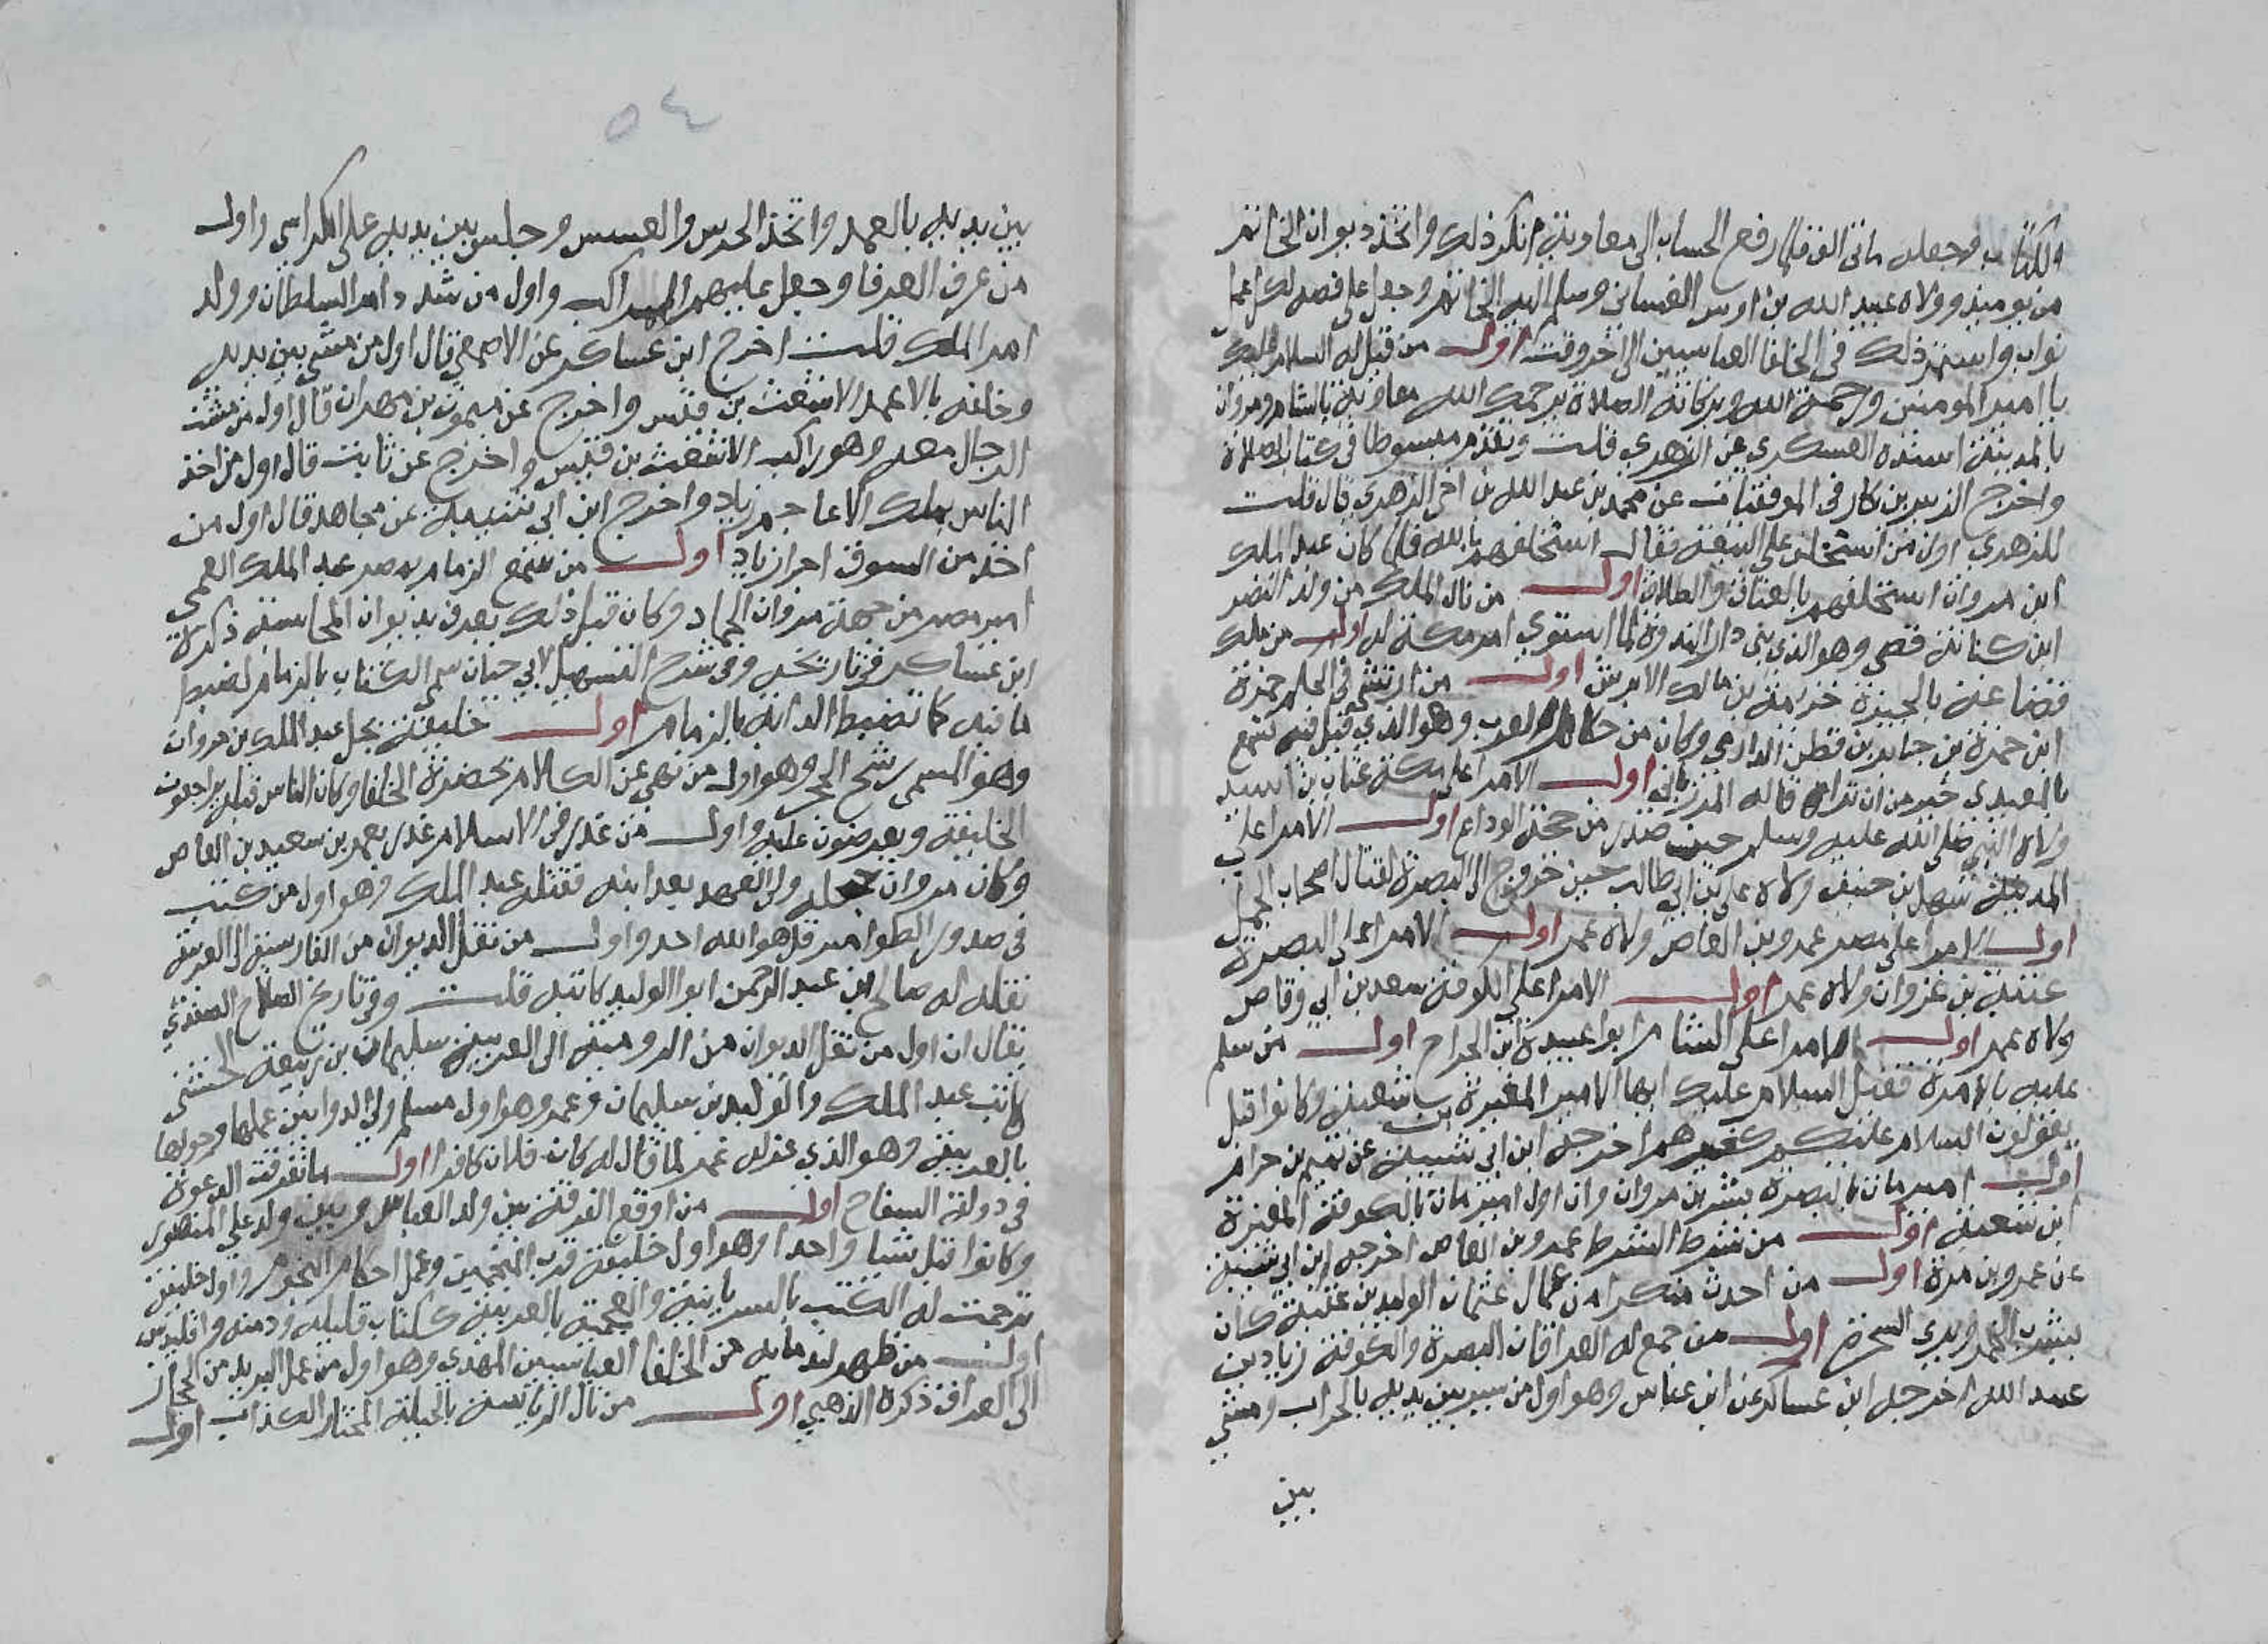 الكتاب وجعله مائتي الف فلما رفع الحساب الى معاوية انكر ذلك واتخذ ديوان الخاتم
من يوميذ وولاه عبيد الله بن اوس الغساني وسلم اليه الخاتم وجعل على فصه لكل عمل
ثواب واستمر ذلك في الخلفا العباسيين الى اخر وقت اول من قيل له السلام عليك
يا امير المومنين ورحمة الله وبركاته الصلاة يرحمك الله معاوية بالشام ومروان
بالمدينة اسنده العسكري عن الزهري قلت وتقدم مبسوطا في كتاب الصلاة
واخرج الزبير بن بكار في الموفقيات عن محمد بن عبد الله بن اخي الزهري قال قلت
للزهري اول من استحلف على البيعة فقال استحلفهم بالله فلما كان عبد الملك
ابن مروان استحلفهم بالعتاق والطلاق اول من نال الملك من ولد النضر
ابن كنانة قصي وهو الذي بنى دار الندوة لما استوي امر مكة له اول من ملك
قضاعة بالحيرة خزيمة بن مالك الابرش اول من ارتشى في الحكم حمزة
ابن حمزة بن جابر بن قطن الدارمي وكان من حكام العرب وهو الذي قيل فيه تسمع
بالمعيدي خير من ان تراه قاله المرزباني اول الامرا على مكة عتاب بن اسيد
ولاه النبي صلى الله عليه وسلم حين صدر من حجة الوداع اول الامرا على
المدينة سهل بن حنيف ولاه علي بن ابي طالب حين خروج الى البصرة لقتال اصحاب الجمل
اول الامرا على مصر عمرو بن العاص ولاه عمر اول الامرا على البصرة
عتبة بن غزوان ولاه عمر اول الامرا على الكوفة سعد بن ابي وقاص
ولاه عمر اول الامرا على الشام ابو عبيدة ابن الجراح اول من سلم
عليه بالامرة فقيل السلام عليك ايها الامير المغيرة بن شعبة وكانوا قبل
يقولون السلام عليكم كغيرهم اخرجه ابن ابي شيبة عن تميم بن حزام
اول امير مات بالبصرة بشر بن مروان وان اول امير مات بالكوفة المغيرة
ابن شعبة اول من شرط الشرط عمرو بن العاص اخرجه ابن ابي شيبة
عن عمرو بن مرة اول من احدث منكرا من عمال عثمان الوليد بن عقبة كان
يشرب الخمر ويدني السحرة اول من جمع له العراقان البصرة والكوفة زياد بن
عبيد الله اخرجه ابن عساكر عن ابن عباس وهو اول من سير بين يديه بالحراب ومشي
بين
٥٤
بين يديه بالعمد واتخذ الحرس والعسس وجلس بين يديه على الكراسي واول
من عرف العرفا وجعل عليهم المراكب واول من شدد امر السلطان ووكد
امر الملك قلت اخرج ابن عساكر عن الاصمعي قال اول من مشي بين يديه
وخلفه بالاعمد الاشعث بن قيس واخرج عن ميمون بن مهران قال اول من مشت
الرجال معه وهو راكب الاشعث بن قيس واخرج عن ثابت قال اول من اخذ
الناس بملك الاعاجم زياد واخرج ابن ابي شيبة عن مجاهد قال اول من
اخذ من السوق اجرا زياد اول من سمع الزمام بمصر عبد الملك العمي
امير مصر من جهة مروان الحمار وكان قبل ذلك يعرف بديوان المحاسبة ذكره
ابن عساكر في تاريخه وفي شرح التسهيل لابي حيان سمي الكتاب بالزمام لضبط
ما فيه كما تضبط الدابة بالزمام اول خليفة بخل عبد الملك بن مروان
وهو المسمى رشح الحجر وهو اول من نهى عن الكلام بحضرة الخلفا وكان الناس قبله يراجعون
الخليفة ويعرضون عليه واول من غدر في الاسلام غدر بعمرو بن سعيد بن العاص
وكان مروان جعله ولي العهد بعد ابنه فقتله عبد الملك وهو اول من كتب
في صدور الطوامير قل هو الله احد واول من نقل الديوان من الفارسية الى العربية
نقله له صالح بن عبد الرحمن ابو الوليد كاتبه قلت وفي تاريخ الصلاح الصفدي
يقال ان اول من نقل الديوان من الرومية الى العربية سليمان بن ربيعة الخشني
كاتب عبد الملك والوليد بن سليمان وعمر وهو اول مسلم ولي الدواوين عملها وحولها
بالعربية وهو الذي عزله عمر لما قال له كان فلان كافرا اول ما تفرقت الدعوة
في دولة السفاح اول من اوقع الفرقة بين ولد العباس وبين ولد علي المنصور
وكانوا قبل شيا واحدا وهو اول خليفة قرب المنجمين وعمل احكام النجوم واول خليفة
ترجمت له الكتب بالسريانية والعجمية بالعربية ككتاب قليله ودمنه واقليدس
اول من ظهر لندمايه من الخلفا العباسيين المهدي وهو اول من عمل البريد من الحجاز
الى العراق ذكره الذهبي اول من نال الرياسة بالحيلة المختار الكذاب اول